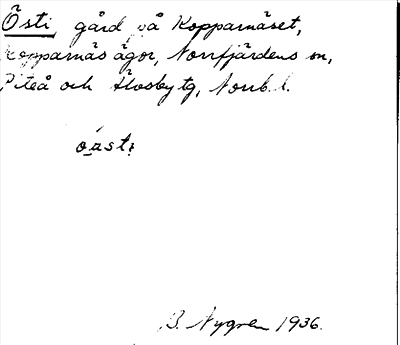 Östi gård på Kopparnäset,
Kopparnäs ägor, Norrfjärdens sn,
Piteå och Älvsby tg, Norrb. l.
B. Nygren 1936.